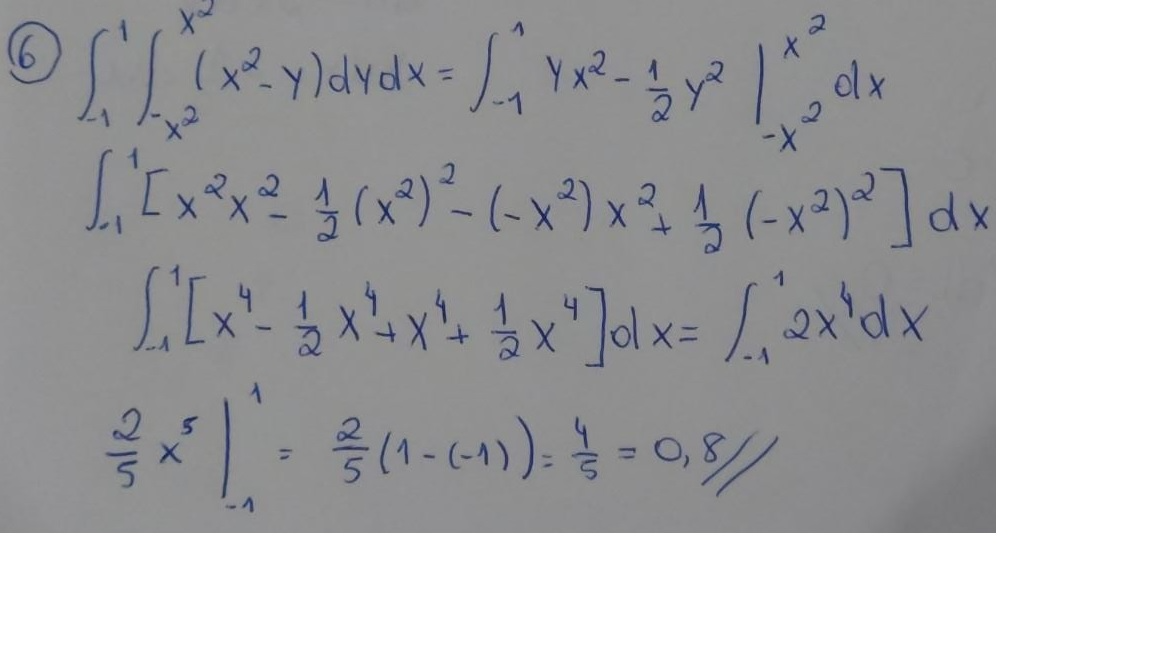 ⑥ ∫₋₁¹ ∫₋ₓ²^x² (x² - y) dy dx = ∫₋₁¹ yx² - 1/2 y² |₋ₓ²^x² dx
∫₋₁¹ [x²x² - 1/2 (x²)² - (-x²) x² + 1/2 (-x²)²] dx
∫₋₁¹ [x⁴ - 1/2 x⁴ + x⁴ + 1/2 x⁴] dx = ∫₋₁¹ 2x⁴ dx
2/5 x⁵ |₋₁¹ = 2/5 (1 - (-1)) = 4/5 = 0,8//